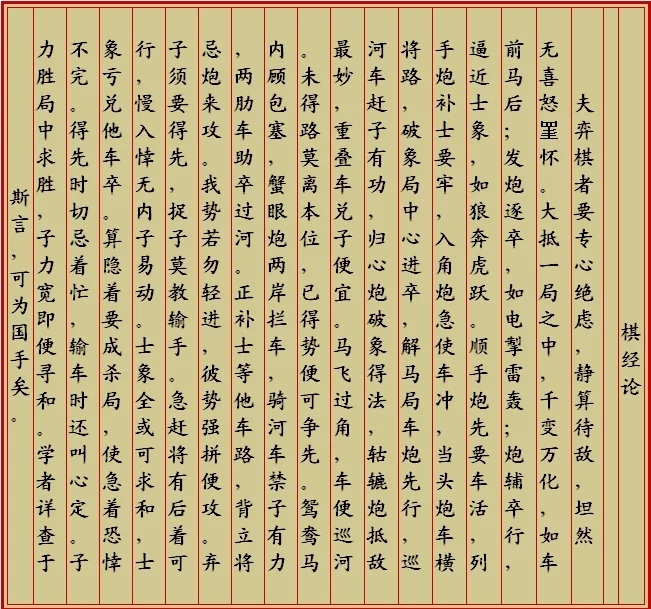 棋经论
夫弈棋者要专心绝虑,静算待敌,坦然
无喜怒罣怀。大抵一局之中,千变万化,如车
前马后;发炮逐卒,如电掣雷轰;炮辅卒行,
逼近士象,如狼奔虎跃。顺手炮先要车活,列
手炮补士要牢,入角炮急使车冲,当头炮车横
将路,破象局中心进卒,解马局车炮先行,巡
河车赶子有功,归心炮破象得法,轱辘炮抵敌
最妙,重叠车兑子便宜。马飞过角,车便巡河
。未得路莫离本位,已得势便可争先。鸳鸯马
内顾包塞,蟹眼炮两岸拦车,骑河车禁子有力
,两肋车助卒过河。正补士等他车路,背立将
忌炮来攻。我势若勿轻进,彼势强拼便攻。弃
子须要得先,捉子莫教输手。急赶将有后着可
行,慢入悻无内子易动。士象全或可求和,士
象亏兑他车卒。算隐着要成杀局,使急着恐悻
不完。得先时切忌着忙,输车时还叫心定。子
力胜局中求胜,子力宽即便寻和。学者详查于
斯言,可为国手矣。